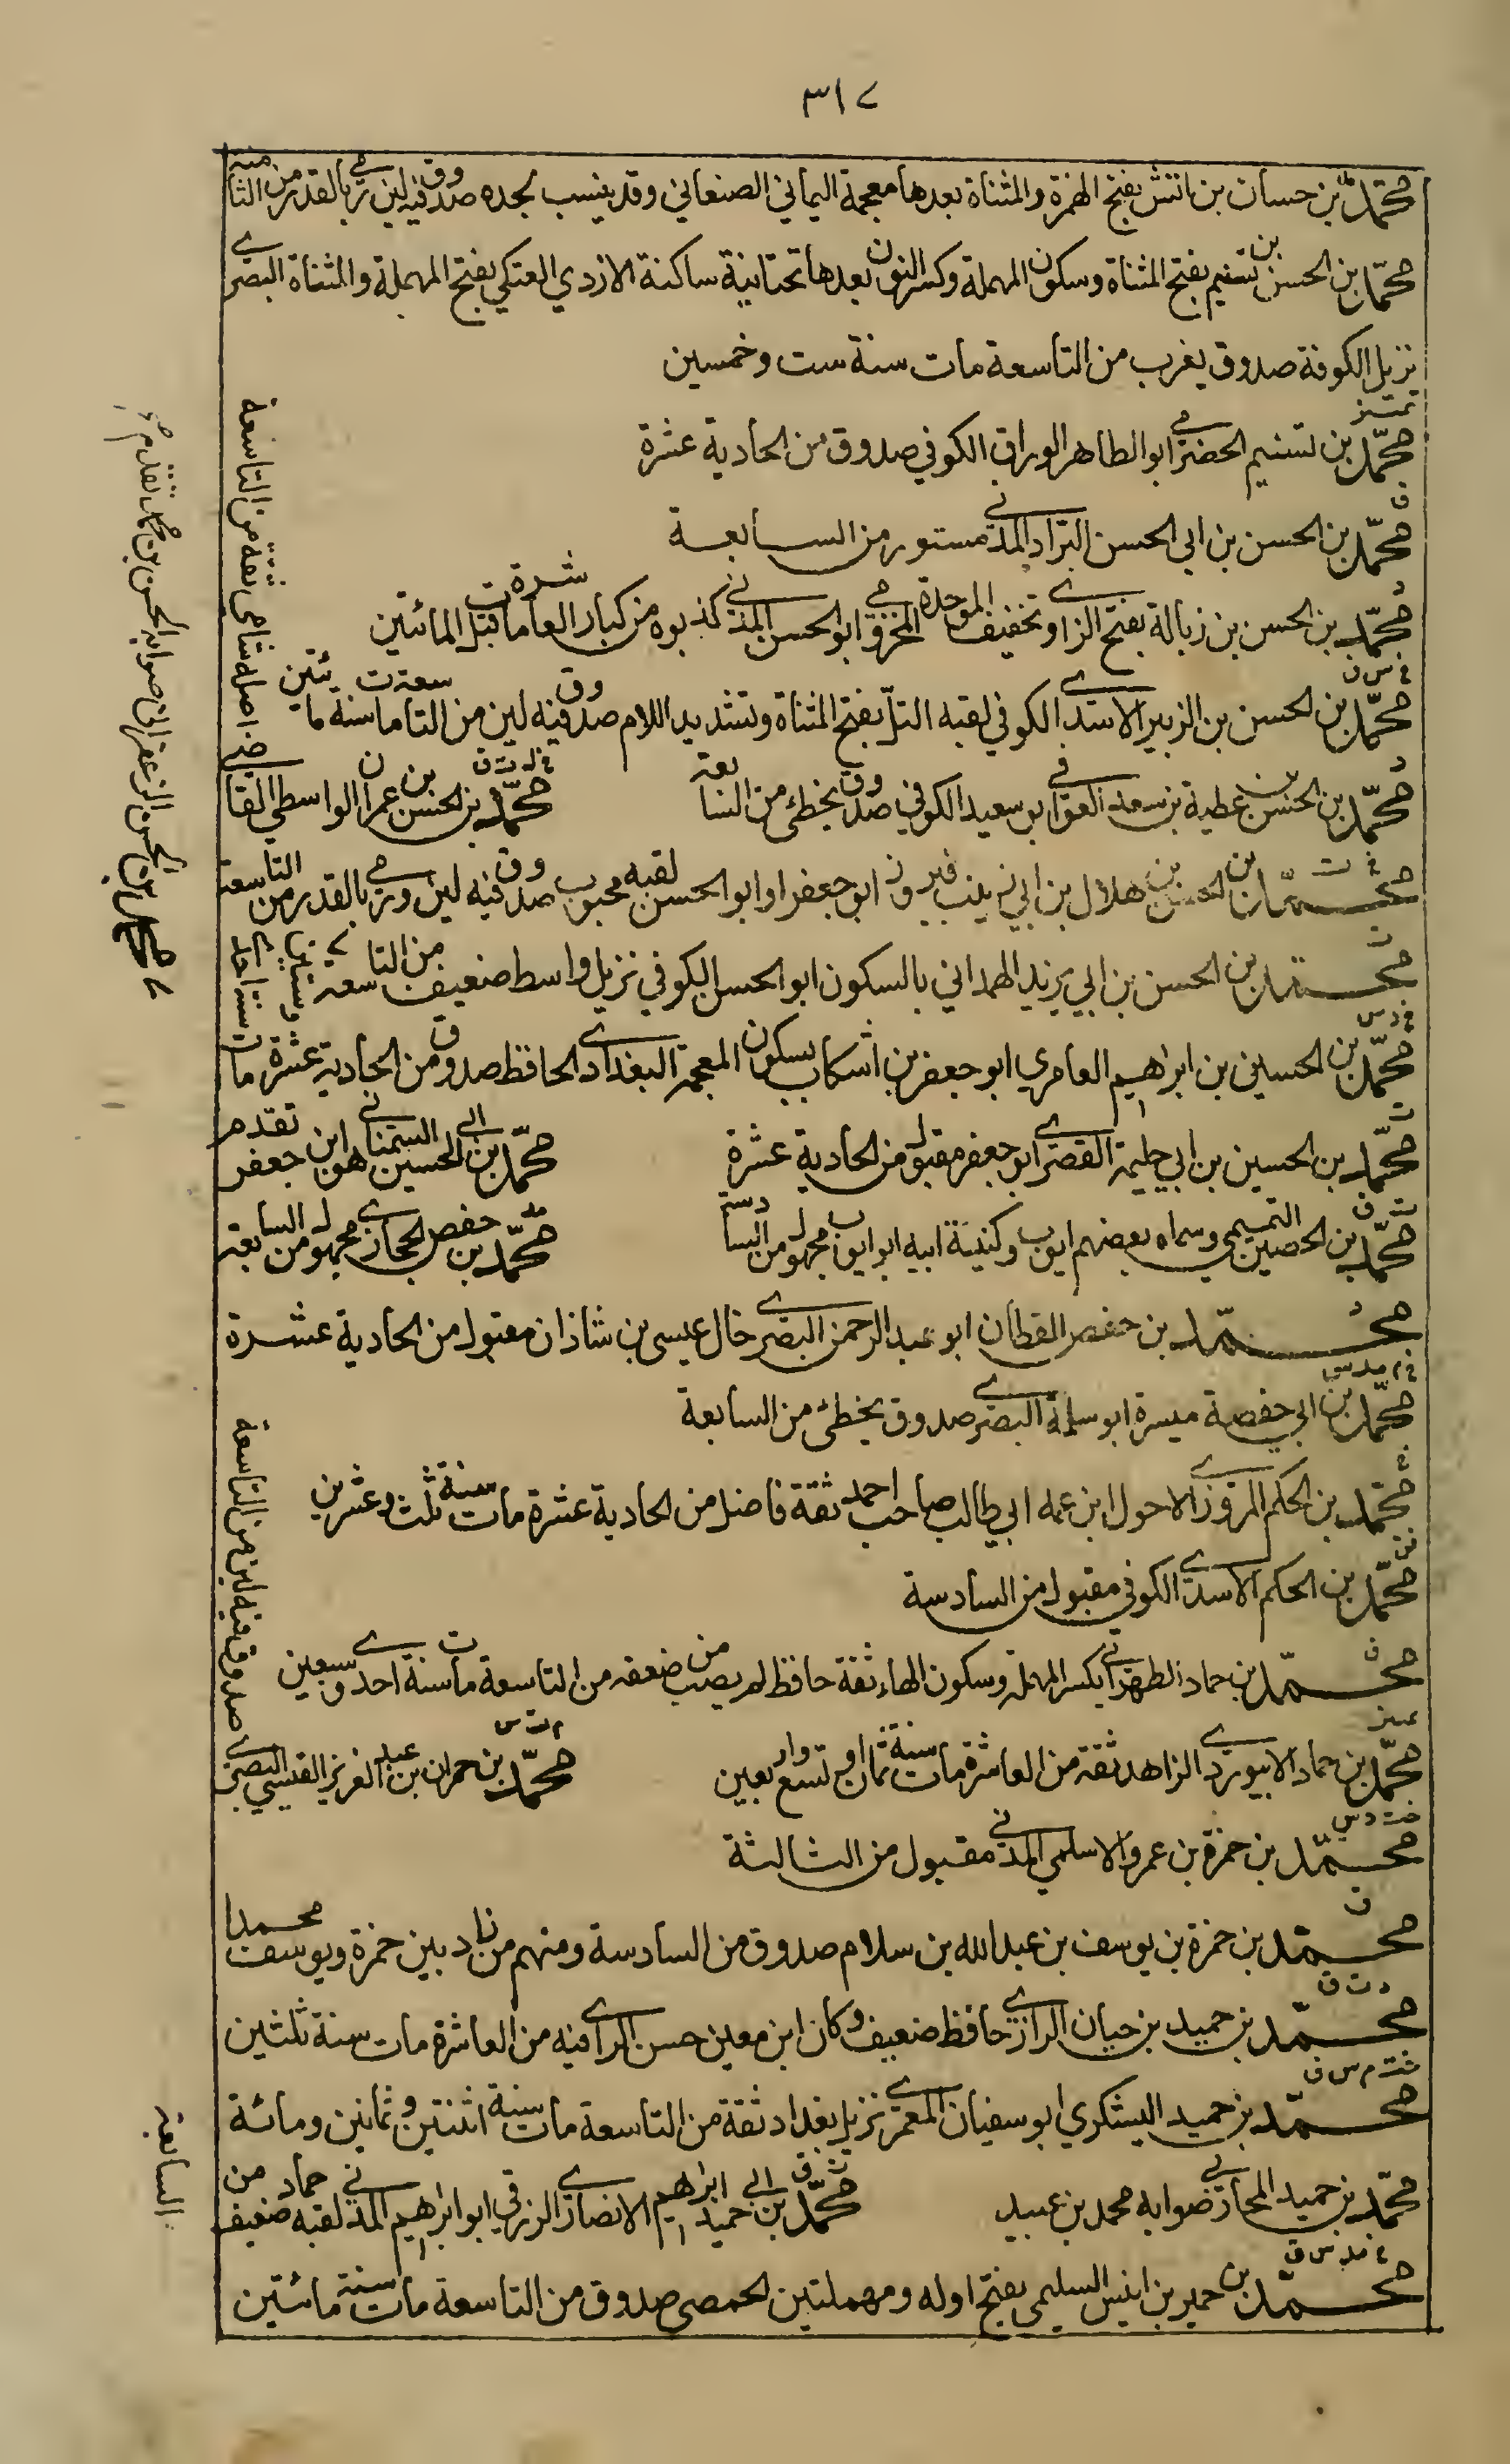 ٣١٧
محمد بن حسان بن اتش بفتح الهمزة والمثناة بعدها معجمة اليماني الصنعاني وقد ينسب لجده صدوق فيه لين رمي بالقدر من الثامنة
محمد بن الحسن بن تسنيم بفتح المثناة وسكون المهملة وكسر النون بعدها تحتانية ساكنة الازدي العتكي بفتح المهملة والمثناة البصري
نزيل الكوفة صدوق يغرب من التاسعة مات سنة ست وخمسين
تمييز
محمد بن تسنيم الحضرمي ابو الطاهر الوراق الكوفي صدوق من الحادية عشرة
ق
محمد بن الحسن بن ابي الحسن البراد المدني مستور من السابعة
د
محمد بن الحسن بن زبالة بفتح الزاي وتخفيف الموحدة المخزومي ابو الحسن المدني كذبوه من كبار العاشرة مات قبل المائتين
خ س ق
محمد بن الحسن بن الزبير الاسدي الكوفي لقبه التل بفتح المثناة وتشديد اللام صدوق فيه لين من التاسعة مات سنة مائتين
د
محمد بن الحسن بن عطية بن سعد العوفي ابو سعيد الكوفي صدوق يخطئ من السابعة
محمد بن الحسن بن عمران الواسطي القاضي اصله شامي ثقة من التاسعة
خ ت
محمد بن الحسن بن هلال بن ابي زينب فيروز ابو جعفر او ابو الحسن لقبه محبوب صدوق فيه لين ورمي بالقدر من التاسعة
محمد بن الحسن الزعفراني صوابه الحسن بن محمد تقدم
ت
محمد بن الحسن بن ابي يزيد الهمداني بالسكون ابو الحسن الكوفي نزيل واسط ضعيف من التاسعة
خ د س
محمد بن الحسين بن ابراهيم العامري ابو جعفر بن اشكاب بسكون المعجمة البغدادي الحافظ صدوق من الحادية عشرة مات سنة احدى وستين
ت
محمد بن الحسين بن ابي حليمة القصري ابو جعفر مقبول من الحادية عشرة
محمد بن ابي الحسين السمناني هو ابن جعفر تقدم
ت ق
محمد بن الحصين التميمي وسماه بعضهم ايوب وكنية ابيه ابو ايوب مجهول من السادسة
مد
محمد بن حفص الحجازي مجهول من السابعة
د
محمد بن حفص القطان ابو عبد الرحمن البصري خال عيسى بن شاذان مقبول من الحادية عشرة
خ م مد س
محمد بن ابي حفصة ميسرة ابو سلمة البصري صدوق يخطئ من السابعة
خ
محمد بن الحكم المروزي الاحول ابن عمه ابي طالب صاحب احمد ثقة فاضل من الحادية عشرة مات سنة ثلث وعشرين
محمد بن الحكم الاسدي الكوفي مقبول من السادسة
ق
محمد بن حماد الطهراني بكسر المهملة وسكون الهاء ثقة حافظ لم يصب من ضعفه من التاسعة مات سنة احدى وسبعين
تمييز
محمد بن حماد الابيوردي الزاهد ثقة من العاشرة مات سنة ثمان او تسع واربعين
م ت س
محمد بن حمران بن عبد العزيز القيسي البصري صدوق فيه لين من التاسعة
خت د س
محمد بن حمزة بن عمرو الاسلمي المدني مقبول من الثالثة
ق
محمد بن حمزة بن يوسف بن عبد الله بن سلام صدوق من السادسة ومنهم من زاد بين حمزة ويوسف محمدا
د ت ق
محمد بن حميد بن حيان الرازي حافظ ضعيف وكان ابن معين حسن الراي فيه من العاشرة مات سنة ثلثين
خت م س ق
محمد بن حميد اليشكري ابو سفيان المعمري نزيل بغداد ثقة من التاسعة مات سنة اثنتين وثمانين ومائة
محمد بن حميد المحاربي صوابه محمد بن عبيد
ت ق
محمد بن ابي حميد ابراهيم الانصاري الزرقي ابو ابراهيم المدني لقبه حماد ضعيف من السابعة
خ مد س ق
محمد بن حمير بن انيس السليحي بفتح اوله ومهملتين الحمصي صدوق من التاسعة مات سنة مائتين